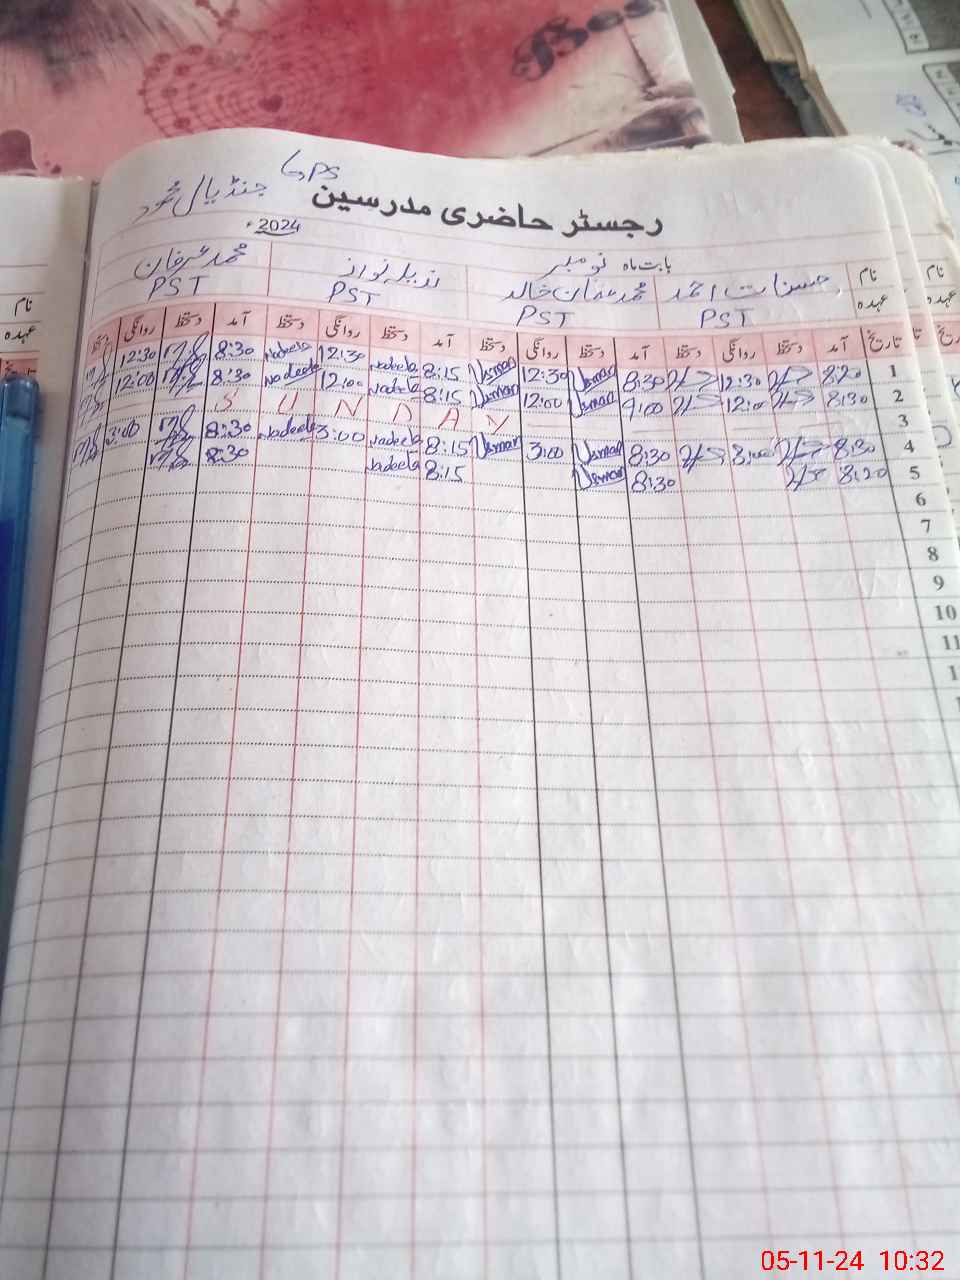 GPS جنڈیال محمود
رجسٹر حاضری مدرسین
2024ء
بابت ماہ نومبر
نام حسنات احمد محمد عثمان خالد نبیلہ نواز محمد عرفان
عہدہ PST PST PST PST
تاریخ آمد دستخط روانگی دستخط آمد دستخط روانگی دستخط آمد دستخط روانگی دستخط آمد دستخط روانگی دستخط
1 8:20 12:30 8:30 Usman 12:30 Usman 8:15 Nadeela 12:30 Nadeela 8:30 12:30
2 8:30 12:00 9:00 Usman 12:00 Usman 8:15 Nadeela 12:00 Nadeela 8:30 12:00
3 S U N D A Y
4 8:30 3:00 8:30 Usman 3:00 Usman 8:15 Nadeela 3:00 Nadeela 8:30 3:00
5 8:20 8:30 Usman 8:15 Nadeela 8:30
6
7
8
9
10
11
نام
عہدہ
نام
عہدہ
05-11-24 10:32